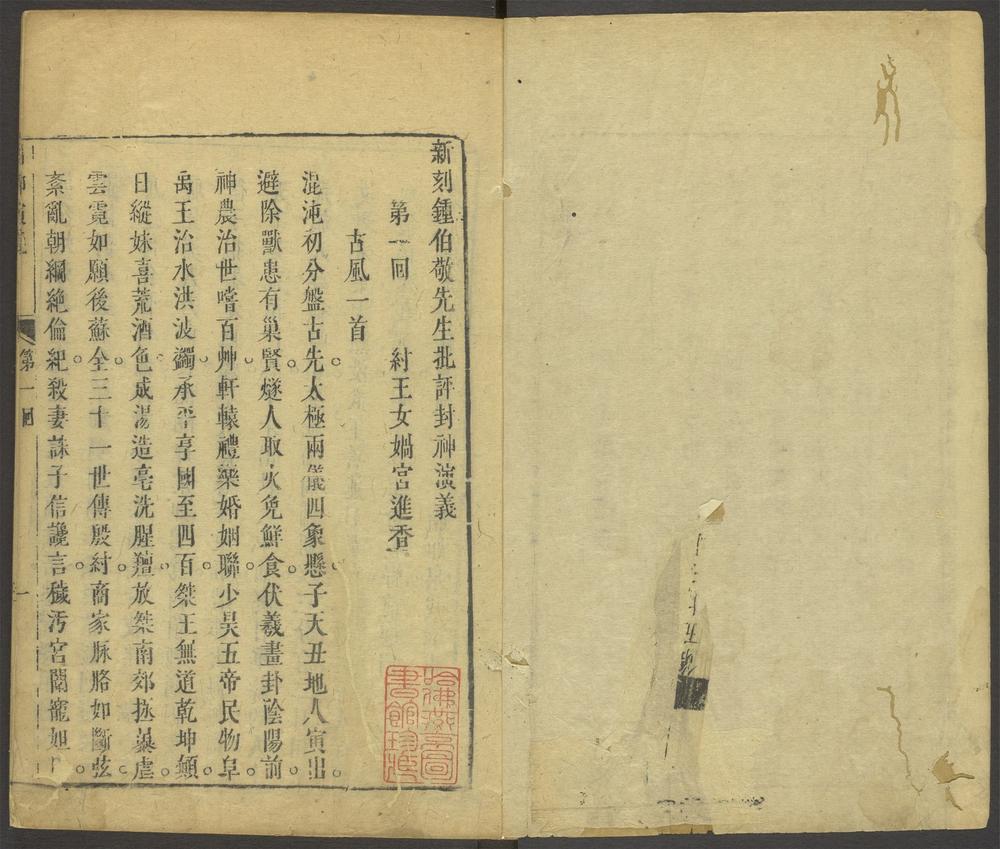 新刻鍾伯敬先生批評封神演義
第一回　紂王女媧宮進香
古風一首
混沌初分盤古先。太極兩儀四象懸。子天丑地人寅出。
避除獸患有巢賢。燧人取火免鮮食。伏羲畫卦陰陽前。
神農治世嚐百艸。軒轅禮樂婚姻聯。少昊五帝民物阜。
禹王治水洪波蠲。承平享國至四百。桀王無道乾坤顛。
日縱妹喜荒酒色。成湯造亳洗腥羶。放桀南郊拯暴虐。
雲霓如願後蘇全。三十一世傳殷紂。商家脉胳如斷弦。
紊亂朝綱絶倫紀。殺妻誅子信讒言。穢汚宮闈寵妲
第一回　一
哈佛燕京圖書館珍藏